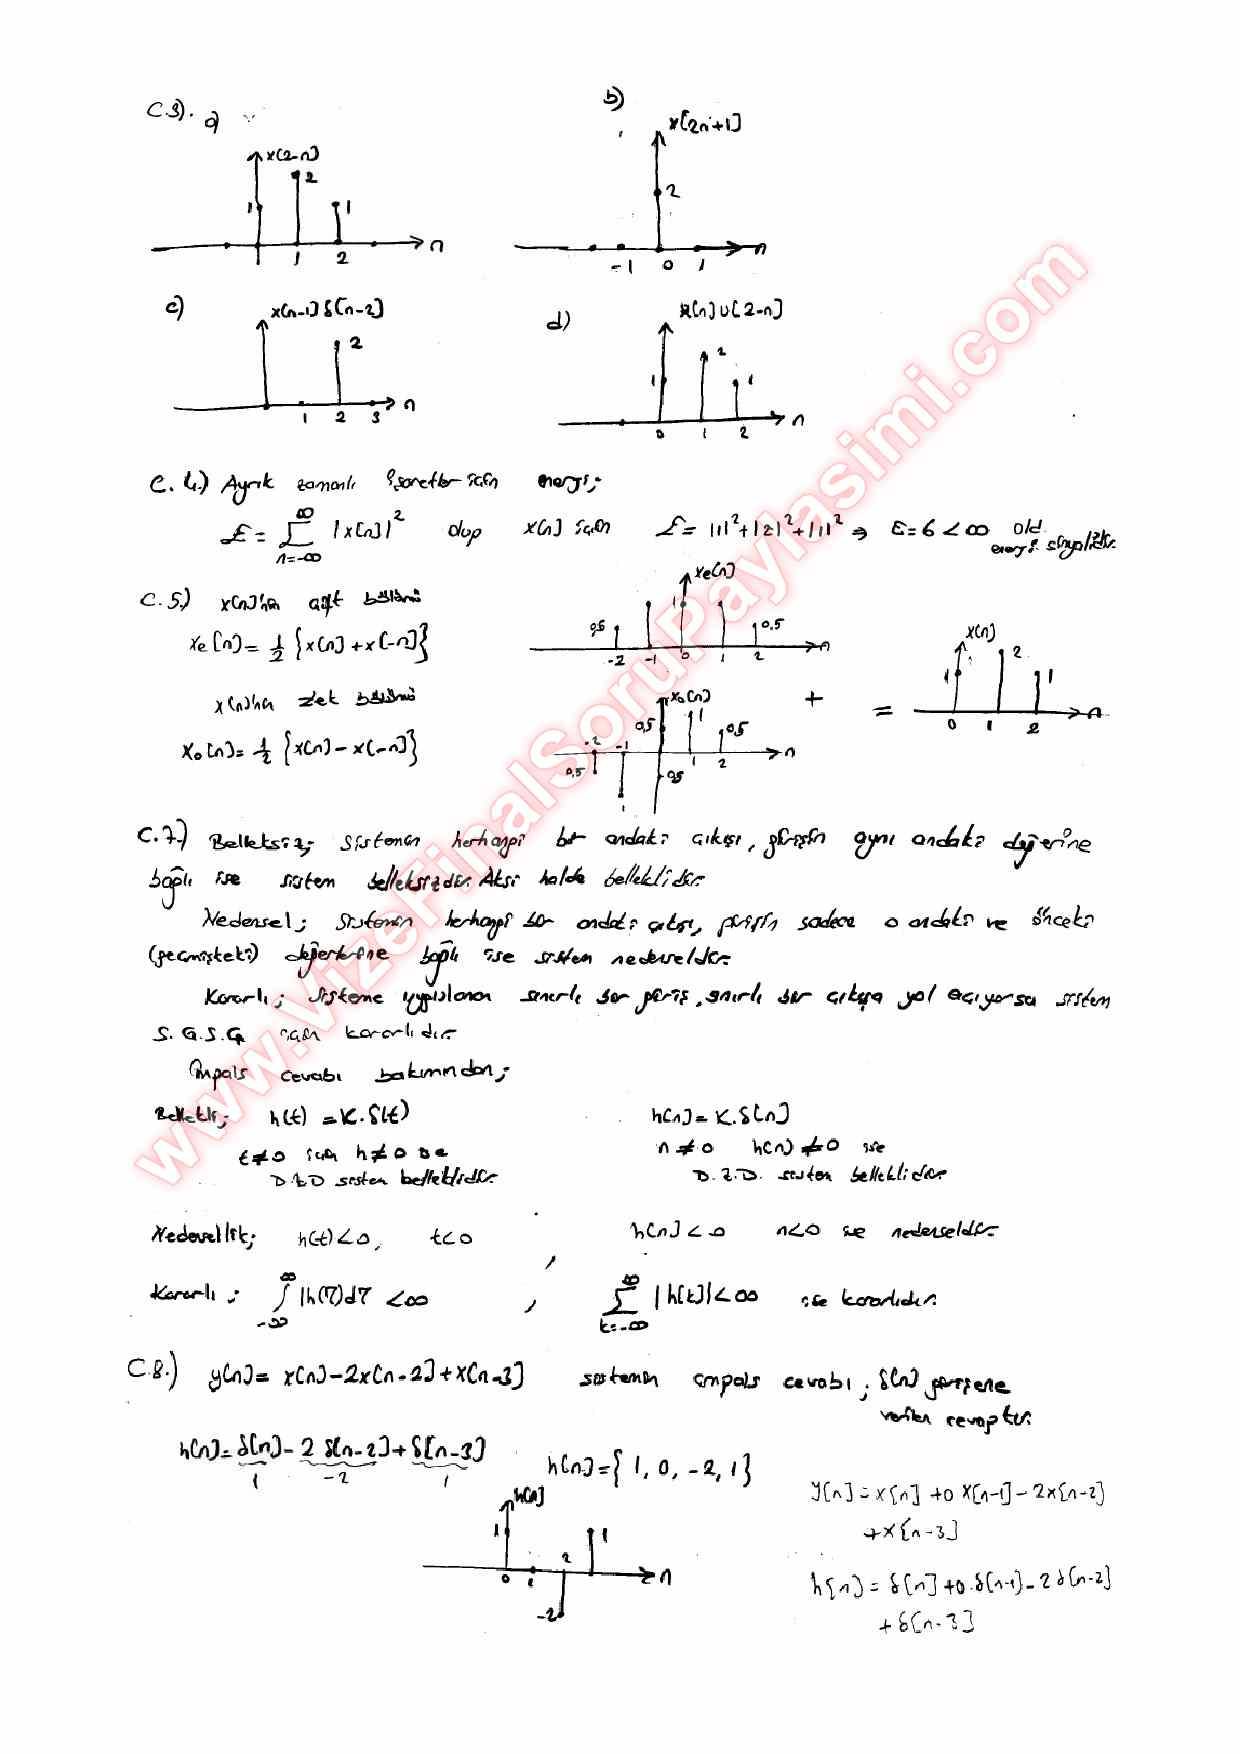 C.3). a)
x[2-n]
1 2 1
1 2 n
b)
x[2n+1]
2
-1 0 1 n
c)
x[n-1] δ[n-2]
2
1 2 3 n
d)
x[n] u[2-n]
1 2 1
0 1 2 n
C.4.) Ayrık zamanlı işaretler için enerji;
E = ∑ |x[n]|² olup x[n] için E = |1|²+|2|²+|1|² ⇒ E=6 < ∞ old.
n=-∞ ∞
enerji
C.5.) x[n]'nin çift bölümü
xe[n] = 1/2 {x[n] + x[-n]}
xe[n]
0,5 1 0.5
-2 -1 0 1 2 n
x[n]'nin tek bölümü
xo[n] = 1/2 {x[n] - x[-n]}
xo[n]
0,5 1 0,5
-2 -1 1 2 n
0,5 1 0,5
+
=
x[n]
1 2 1
0 1 2 n
C.7.) Belleksiz; Sistemin herhangi bir andaki çıkışı, girişin aynı andaki değerine
bağlı ise sistem belleksizdir. Aksi halde belleklidir.
Nedensel; Sistemin herhangi bir andaki çıkışı, girişin sadece o andaki ve önceki
(geçmişteki) değerlerine bağlı ise sistem nedenseldir.
Kararlı; Sisteme uygulanan sınırlı bir giriş, sınırlı bir çıkışa yol açıyorsa sistem
S.G.S.Ç için kararlıdır.
İmpals cevabı bakımından;
Bellekli; h(t) = K.δ(t) h[n] = K.δ[n]
t≠0 için h≠0 ise n≠0 h[n]≠0 ise
D.Z.D sistem belleklidir. D.Z.D. sistem belleklidir.
Nedensellik; h(t)<0, t<0 , h[n]<0 n<0 ise nedenseldir.
Kararlı; ∫ |h(τ)dτ < ∞ , ∑ |h[k]| < ∞ ise kararlıdır.
-∞ ∞ k=-∞ ∞
C.8.) y[n] = x[n] - 2x[n-2] + x[n-3] sistemin impals cevabı; δ[n] girişine
verilen cevaptır.
h[n] = δ[n] - 2 δ[n-2] + δ[n-3]
1 -2 1
h[n] = { 1, 0, -2, 1}
h[n]
1 1
0 1 2 n
-2
y[n] = x[n] + 0 x[n-1] - 2x[n-2]
+ x[n-3]
h[n] = δ[n] + 0.δ[n-1] - 2 δ[n-2]
+ δ[n-3]
www.VizeFinalSoruPaylasimi.com